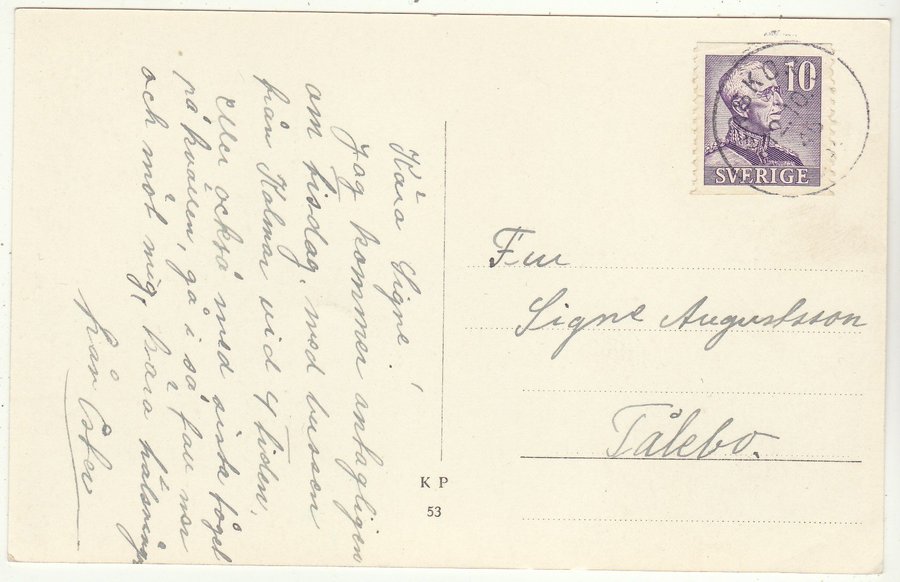 Kära Signe!
Jag kommer antagligen
om tisdag, med bussen
från Kalmar vid 4 tiden.
Eller också med sista tåget
på kvällen, gå i så fall ner
och möt mig, kära hälsningar
från Ester
K P
53
10
SVERIGE
Fru
Signe Augustsson
Tålebo.